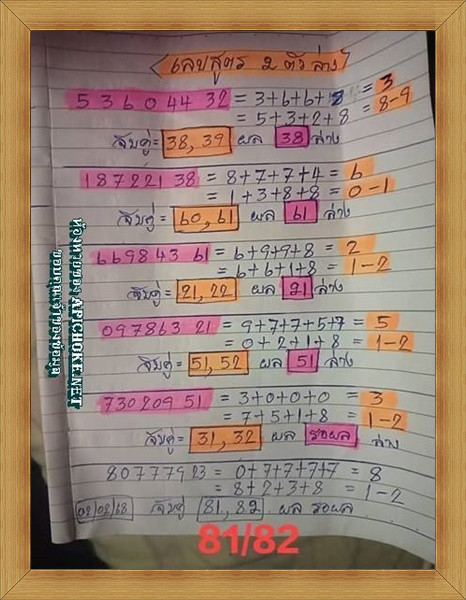 เลขสูตร 2 ตัวล่าง
536044 32 = 3+6+6+8 = 3
= 5+3+2+8 = 8-9
จับคู่= 38, 39 ผล 38 ล่าง
187221 38 = 8+7+7+4 = 6
= 1+3+8+8 = 0-1
จับคู่= 60, 61 ผล 61 ล่าง
669843 61 = 6+9+9+8 = 2
= 6+6+1+8 = 1-2
จับคู่= 21, 22 ผล 21 ล่าง
097863 21 = 9+7+7+5+7 = 5
= 0+2+1+8 = 1-2
จับคู่= 51, 52 ผล 51 ล่าง
730209 51 = 3+0+0+0 = 3
= 7+5+1+8 = 1-2
จับคู่= 31, 32 ผล รอผล ล่าง
807779 23 = 0+7+7+7+7 = 8
= 8+2+3+8 = 1-2
02/02/68 จับคู่ 81, 82 ผล รอผล
81/82
APICHOKE.NET
ขอบคุณเจ้าของข้อมูล